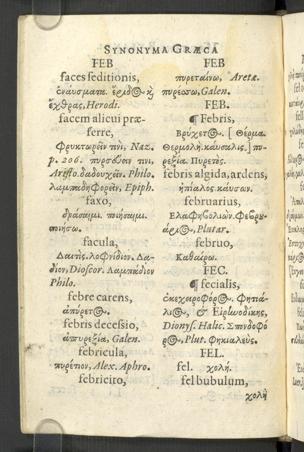 SYNONYMA GRÆCA
FEB
faces seditionis,
ἔχθρας, Herodi.
facem alicui præ-
ferre,
Φρυκτωρεῖν τινι, Naz.
p. 206. πυρσεύειν τινι,
Aristo. δαδουχεῖν. Philo.
λαμπαδηφορεῖν, Epiph.
faxo,
δράσαιμι. ποιήσαιμι.
ποιήσω.
facula,
Δαετὶς. λοφνίδιον. Δα-
δίον, Dioscor. Λαμπάδιον
Philo.
febre carens,
ἀπύρετος.
febris decessio,
ἀπυρεξία, Galen.
febricula,
πυρέτιον, Alex. Aphro.
febricito,
FEB
πυρεταίνω, Aretæ.
πυρέσσω, Galen.
FEB.
¶ Febris,
[ Θέρμα.
Θερμολὴ. καύσαλις.] πυ-
ρεξία. Πυρετὸς.
febris algida, ardens,
ἠπίαλος. καύσων.
februarius,
Ἐλαφηβολιών. Φεβρου-
άριος, Plutar.
februo,
Καθαίρω.
FEC.
¶ fecialis,
ἐκεχειροφόρος. Φητιά-
λιος, & Εἰρηνοδίκης,
Dionys. Halic. Σπονδοφό
ρος, Plut. Φηκιαλεὺς.
FEL.
fel. χολή.
fel bubulum,
χολὴ